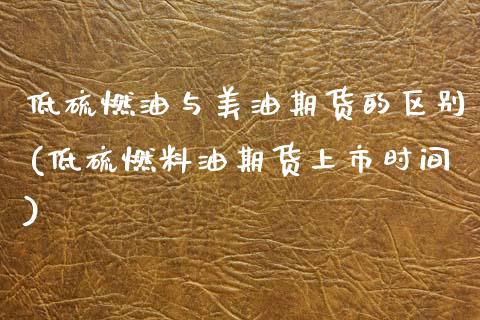 低硫燃油与美油期货的区别
(低硫燃料油期货上市时间
)